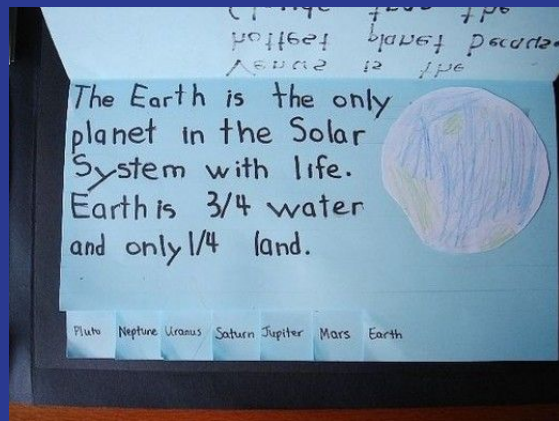 Venus is the
hottest planet
the
The Earth is the only
planet in the Solar
System with life.
Earth is 3/4 water
and only 1/4 land.
Pluto Neptune Uranus Saturn Jupiter Mars Earth